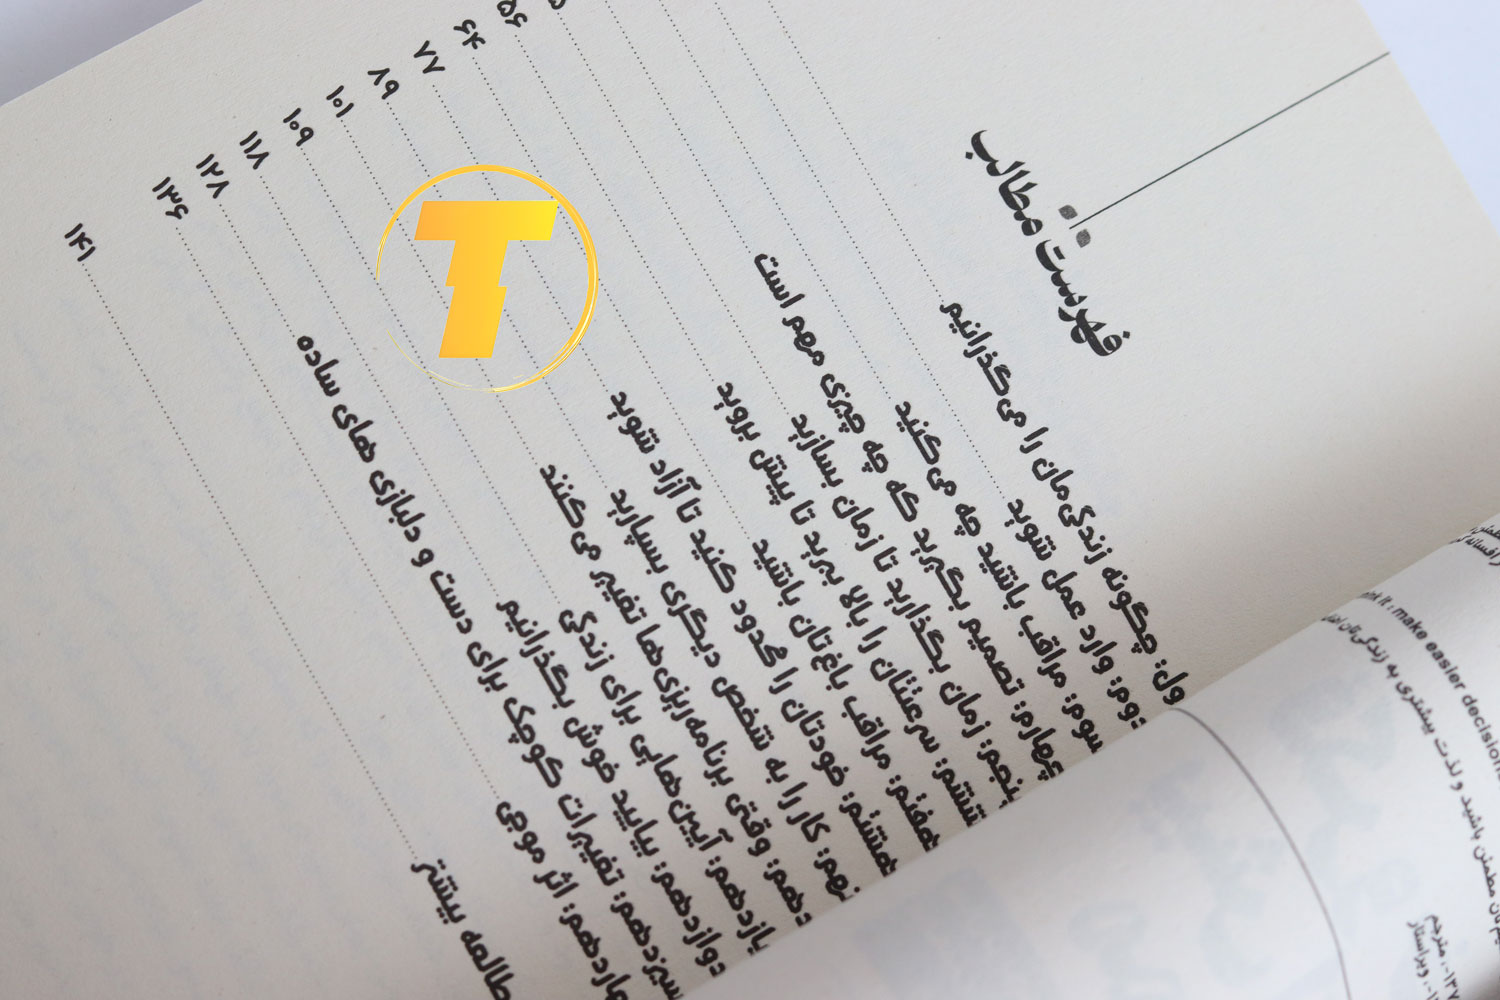 فهرست مطالب
ول: چگونه زندگی‌مان را می‌گذرانیم
دوم: وارد عمل شوید
سوم: مراقب باشید چه می‌کنید
چهارم: تصمیم بگیرید که چه چیزی مهم است
پنجم: زمان بگذارید تا زمان بسازید
ششم: سرعتتان را بالا ببرید تا پیش بروید ۵۶
هفتم: مراقب باغ‌تان باشید ۶۴
هشتم: خودتان را محدود کنید تا آزاد شوید ۷۷
نهم: کار را به شخص دیگری بسپارید ۸۹
دهم: وقتی برنامه‌ریزی‌ها تغییر می‌کنند ۱۰۱
یازدهم: آیین‌هایی برای زندگی ۱۰۹
دوازدهم: بیایید خوش بگذرانیم ۱۱۸
سیزدهم: تغییرات کوچک برای دست و دلبازی های ساده ۱۲۸
هاردهم: اثر موجی ۱۳۶
طالعه بیشتر ۱۴۱
make easier decision
مطمئن باشید و لذت بیشتری به زندگی‌تان
مترجم
ویراستار
T